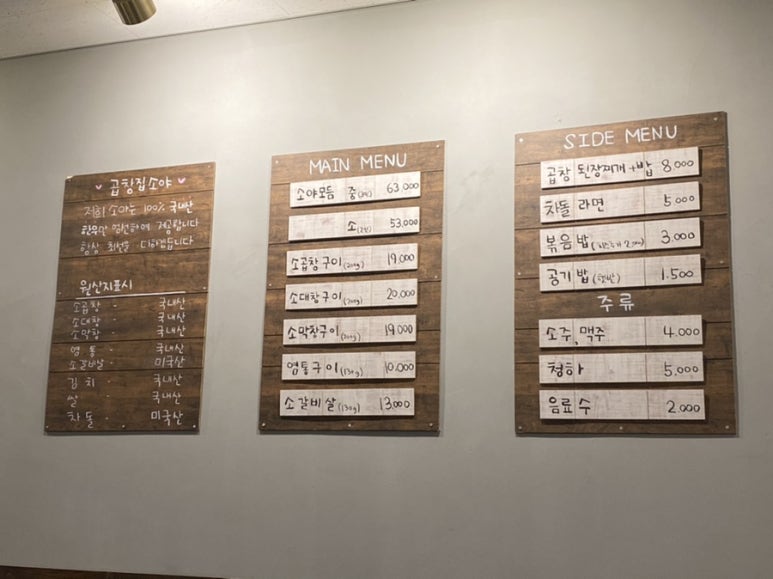 곱창집소야
저희 소야는 100% 국내산
한우만 엄선하여 제공합니다
항상 최선을 다하겠습니다
원산지표시
소곱창 - 국내산
소대창 - 국내산
소막창 - 국내산
염통 - 국내산
소갈비살 - 미국산
김치 - 국내산
쌀 - 국내산
차돌 - 미국산
MAIN MENU
소야모듬 중 63,000
소 53,000
소곱창구이 (200g) 19,000
소대창구이 (200g) 20,000
소막창구이 (200g) 19,000
염통구이 (130g) 10,000
소갈비살 (130g) 13,000
SIDE MENU
곱창 된장찌개+밥 8,000
차돌 라면 5,000
볶음밥 3,000
공기밥 (햇반) 1,500
주류
소주, 맥주 4,000
청하 5,000
음료수 2,000